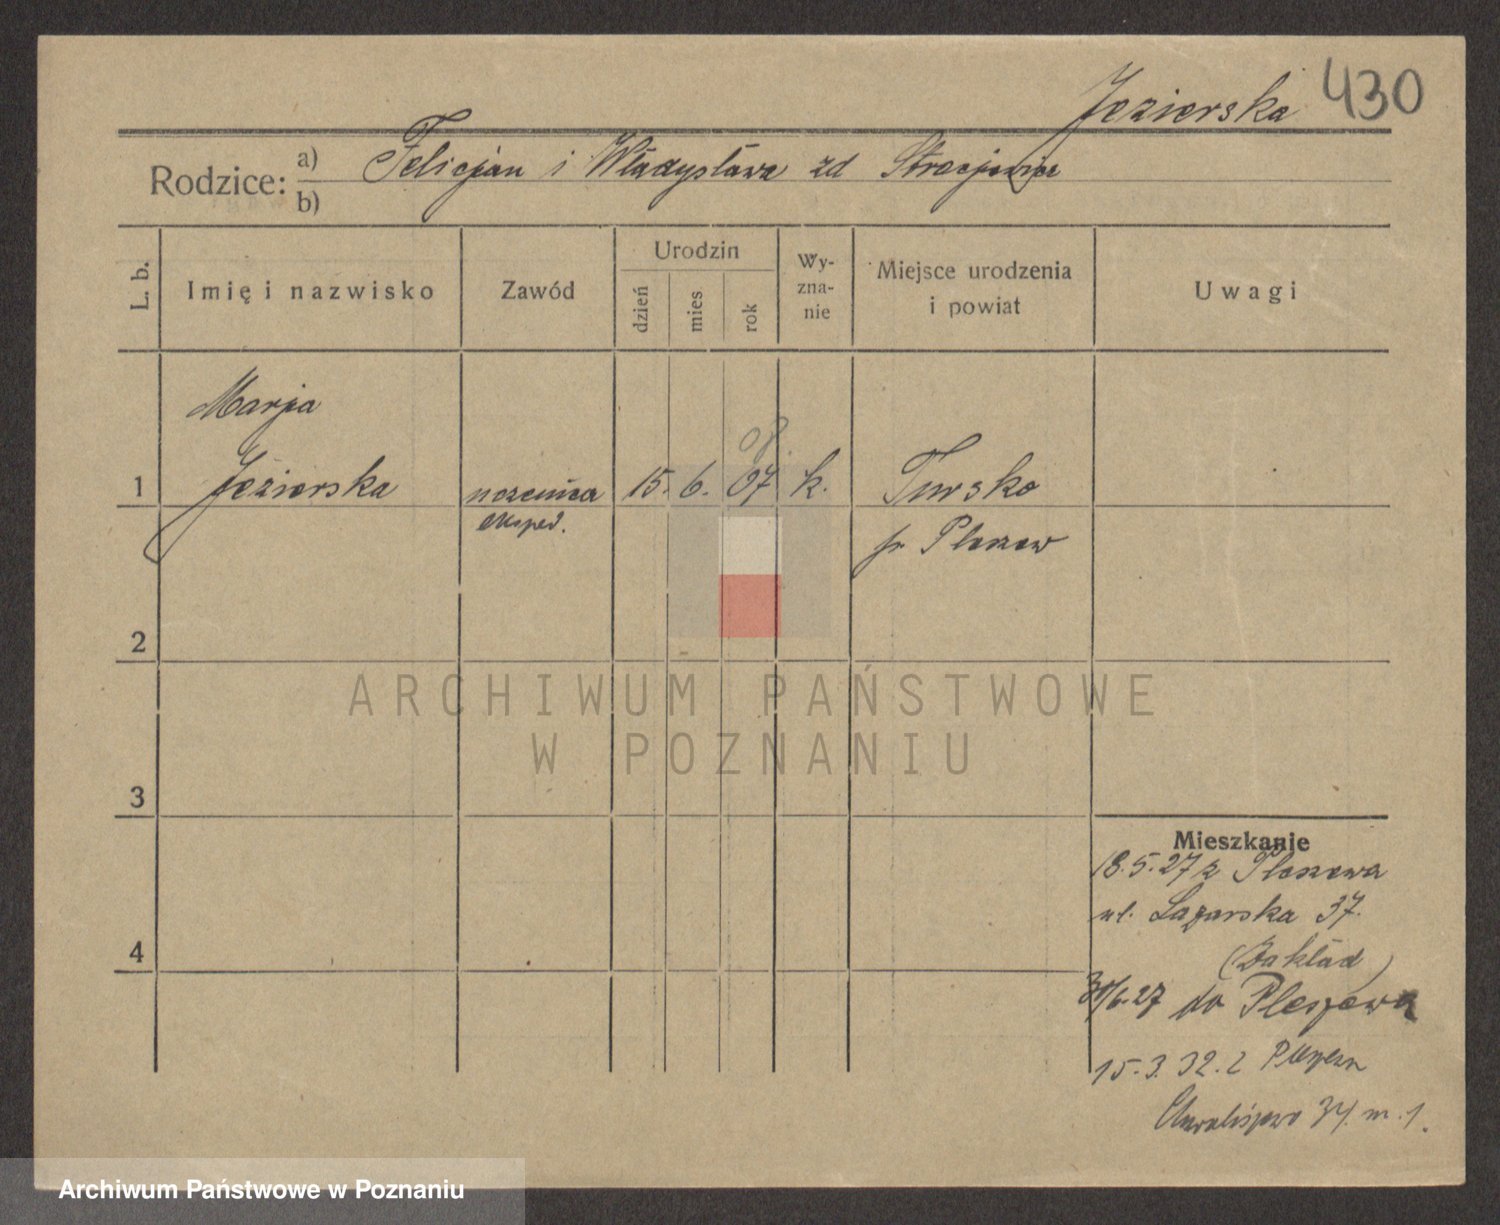 Jezierska 430
Rodzice: a) Felicjan i Władysława zd
b)
L. b. Imię i nazwisko Zawód Urodzin dzień mies rok Wyznanie Miejsce urodzenia i powiat Uwagi
Marja
08.
1 Jezierska uczenica 15. 6. 07 k. Tursko
eksped. p. Pleszew
2
3
4
Mieszkanie
18.5.27 z Pleszewa
ul. Łazarska 37.
(Zakład)
/6.27 do Pleszewa
15.3.32. z
Chwaliszewo 34 m. 1.
ARCHIWUM PAŃSTWOWE
W POZNANIU
Archiwum Państwowe w Poznaniu